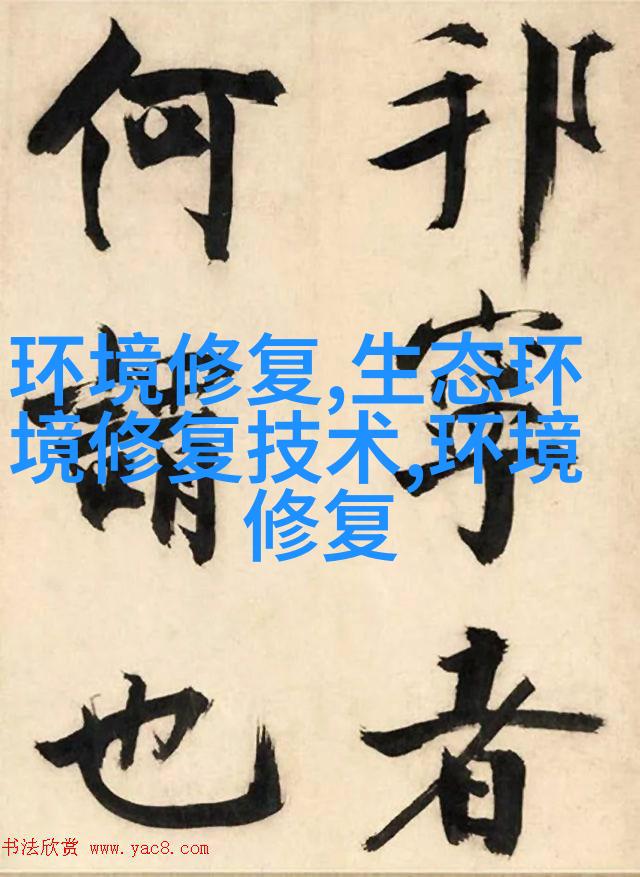 邦寧者
何謂也
环境修复,生态环
境修复技术,环境
修复
书法欣赏 www.yac8.com